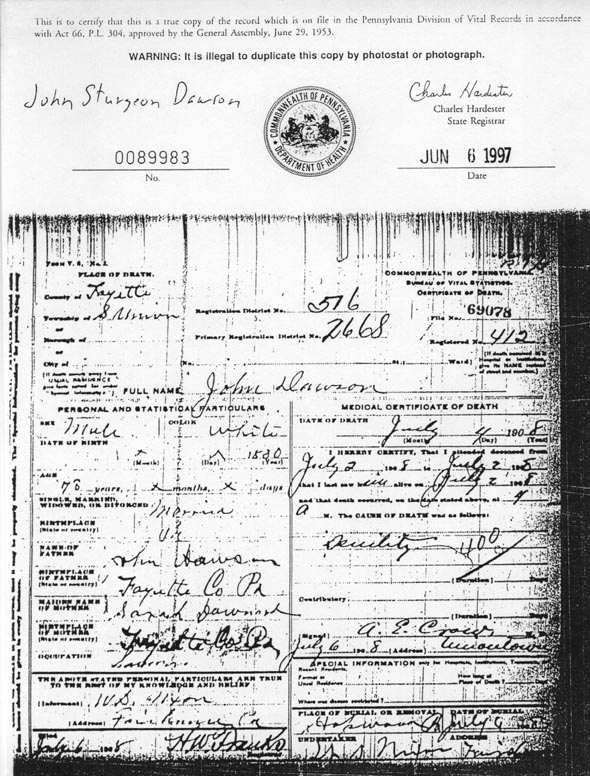 This is to certify that this is a true copy of the record which is on file in the Pennsylvania Division of Vital Records in accordance
with Act 66, P.L. 304, approved by the General Assembly, June 29, 1953.
WARNING: It is illegal to duplicate this copy by photostat or photograph.
John Sturgeon Dawson
COMMONWEALTH OF PENNSYLVANIA
DEPARTMENT OF HEALTH
Charles Hardester
Charles Hardester
State Registrar
0089983
No.
JUN 6 1997
Date
PLACE OF DEATH.
County of Fayette
Township of S Union
or
Borough of
or
City of
COMMONWEALTH OF PENNSYLVANIA
BUREAU OF VITAL STATISTICS.
CERTIFICATE OF DEATH.
Registration District No. 516
File No. 69078
Primary Registration District No. 2668
Registered No. 412
No. St.; Ward)
FULL NAME John Dawson
PERSONAL AND STATISTICAL PARTICULARS
SEX Male COLOR White
DATE OF BIRTH
(Month) (Day) (Year)
AGE
years, months, days
SINGLE, MARRIED,
WIDOWED, OR DIVORCED Married
BIRTHPLACE
(State or country)
NAME OF
FATHER John Dawson
BIRTHPLACE
OF FATHER Fayette Co Pa
(State or country)
MAIDEN NAME
OF MOTHER Sarah
BIRTHPLACE
OF MOTHER Fayette Co. Pa
(State or country)
OCCUPATION
THE ABOVE STATED PERSONAL PARTICULARS ARE TRUE
TO THE BEST OF MY KNOWLEDGE AND BELIEF
(Informant) W.S. Nixon
(Address)
Filed
July 6 1908
MEDICAL CERTIFICATE OF DEATH
DATE OF DEATH
July 4 1908
(Month) (Day) (Year)
I HEREBY CERTIFY, That I attended deceased from
July 2 1908 to July 2 1908
that I last saw him alive on July 2 1908
and that death occurred, on the date stated above, at 9
A M. The CAUSE OF DEATH was as follows:
(Duration) Days
Contributory
(Duration) Days
(Signed) A. E. Crow
July 6 1908 (Address) Uniontown
SPECIAL INFORMATION only for Hospitals, Institutions,
Former or
Usual Residence
How long at
Place of Death?
Where was disease contracted?
PLACE OF BURIAL OR REMOVAL DATE OF BURIAL
July 6 1908
UNDERTAKER ADDRESS